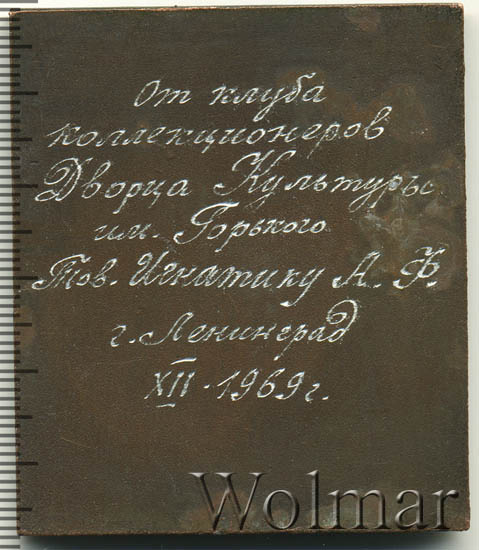 От клуба
коллекционеров
Дворца Культуры
им. Горького
Тов. Игнатику А. Ф.
г. Ленинград
XII - 1969 г.
Wolmar